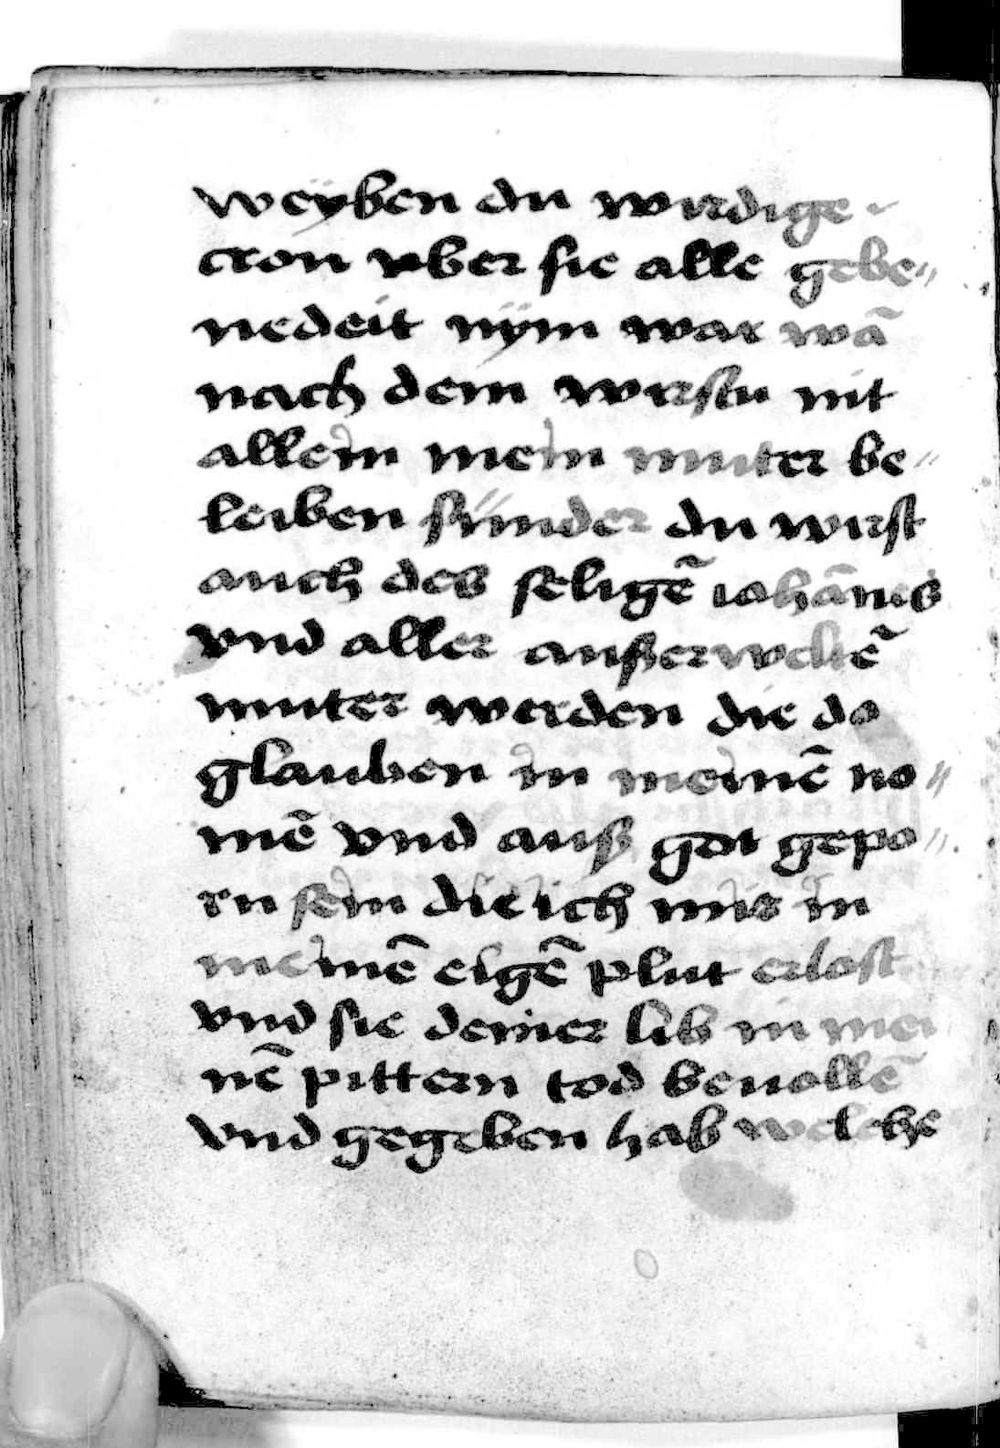 weÿben du wirdige
cron vber sie alle gebe„
nedeit nÿm war wā
nach dem wirstu nit
allein mein muter be„
leiben sünder du wirst
auch des seligē iohānis
vnd aller außerweltē
muter werden die do
glauben in meinē no„
mē vnd auß got gepo„
rn sein die ich mis in
meinē eigē plut erlost
vnd sie deiner lib in mei
nē pittern tod beuollē
vnd gegeben hab welche